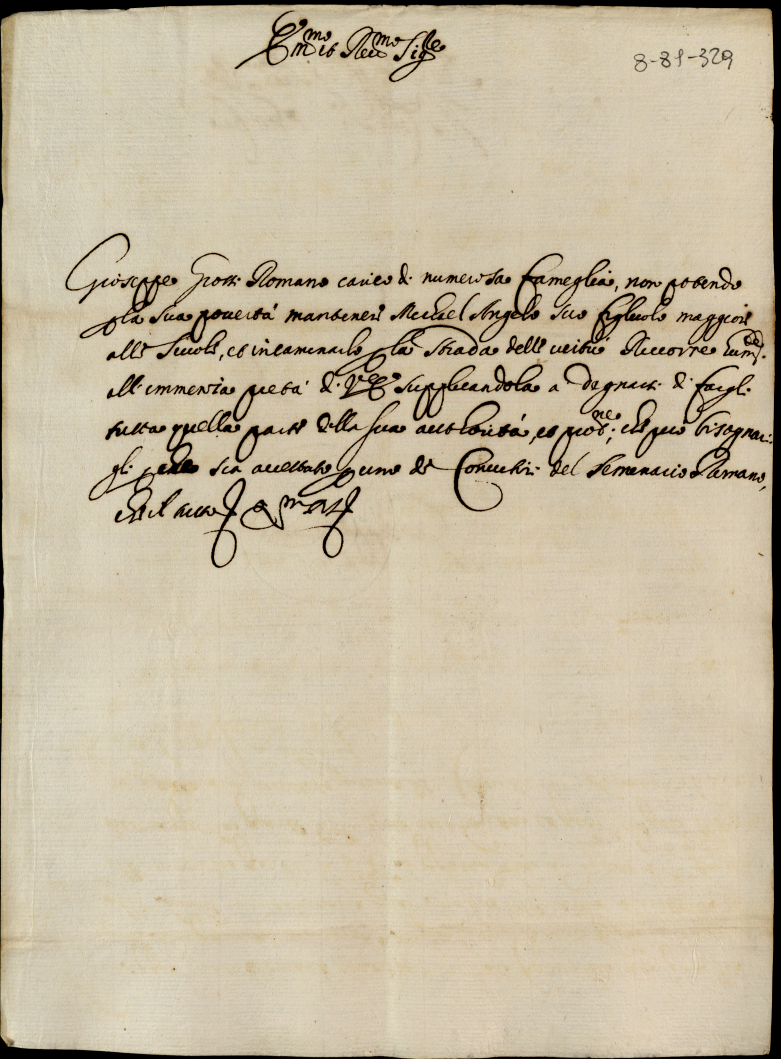 Em.mo et Reu.mo Sig.re
8-81-329
Gioseppe Grossi Romano carico di numerosa fameglia, non potendo
p la sua pouertà mantener Michel Angelo suo figliuolo maggiore
alle scuole, et incaminarlo p la strada delle uertù Riccorre hum.te
all'immensa pietà di V.E. supplicandola a degnarsi di fargli
tutta quella parte della sua auttorità, et pro.ne, che può bisognar-
gli, che sia accettato p uno de Conuittori del Semenario Romano,
che il tutto &